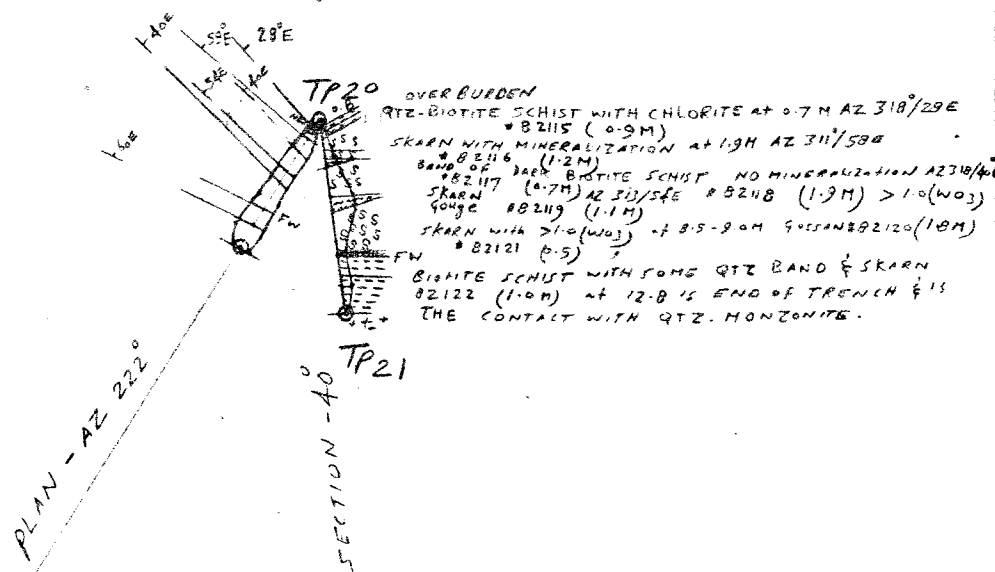 40E
59°E
28°E
54E
40E
50E
TP20
OVERBURDEN
QTZ-BIOTITE SCHIST WITH CHLORITE at 0.7 M AZ 318°/28E
*82115 (0.9M)
SKARN WITH MINERALIZATION at 1.9M AZ 311°/58E
*82116 (1.2M)
BAND OF DARK BIOTITE SCHIST NO MINERALIZATION AZ318/40E
*82117 (0.7M)
SKARN AZ 313/54E #82118 (1.9M) > 1.0(WO3)
Gouge #82119 (1.1M)
SKARN with >1.0(WO3) at 8.5-9.0M GOSSAN#82120(1.8M)
*82121 (0.5)
FW
FW
BIOTITE SCHIST WITH SOME QTZ BAND & SKARN
82122 (1.0M) at 12.8 IS END OF TRENCH & IS
THE CONTACT WITH QTZ. MONZONITE.
TP21
PLAN - AZ 222°
SECTION -40°